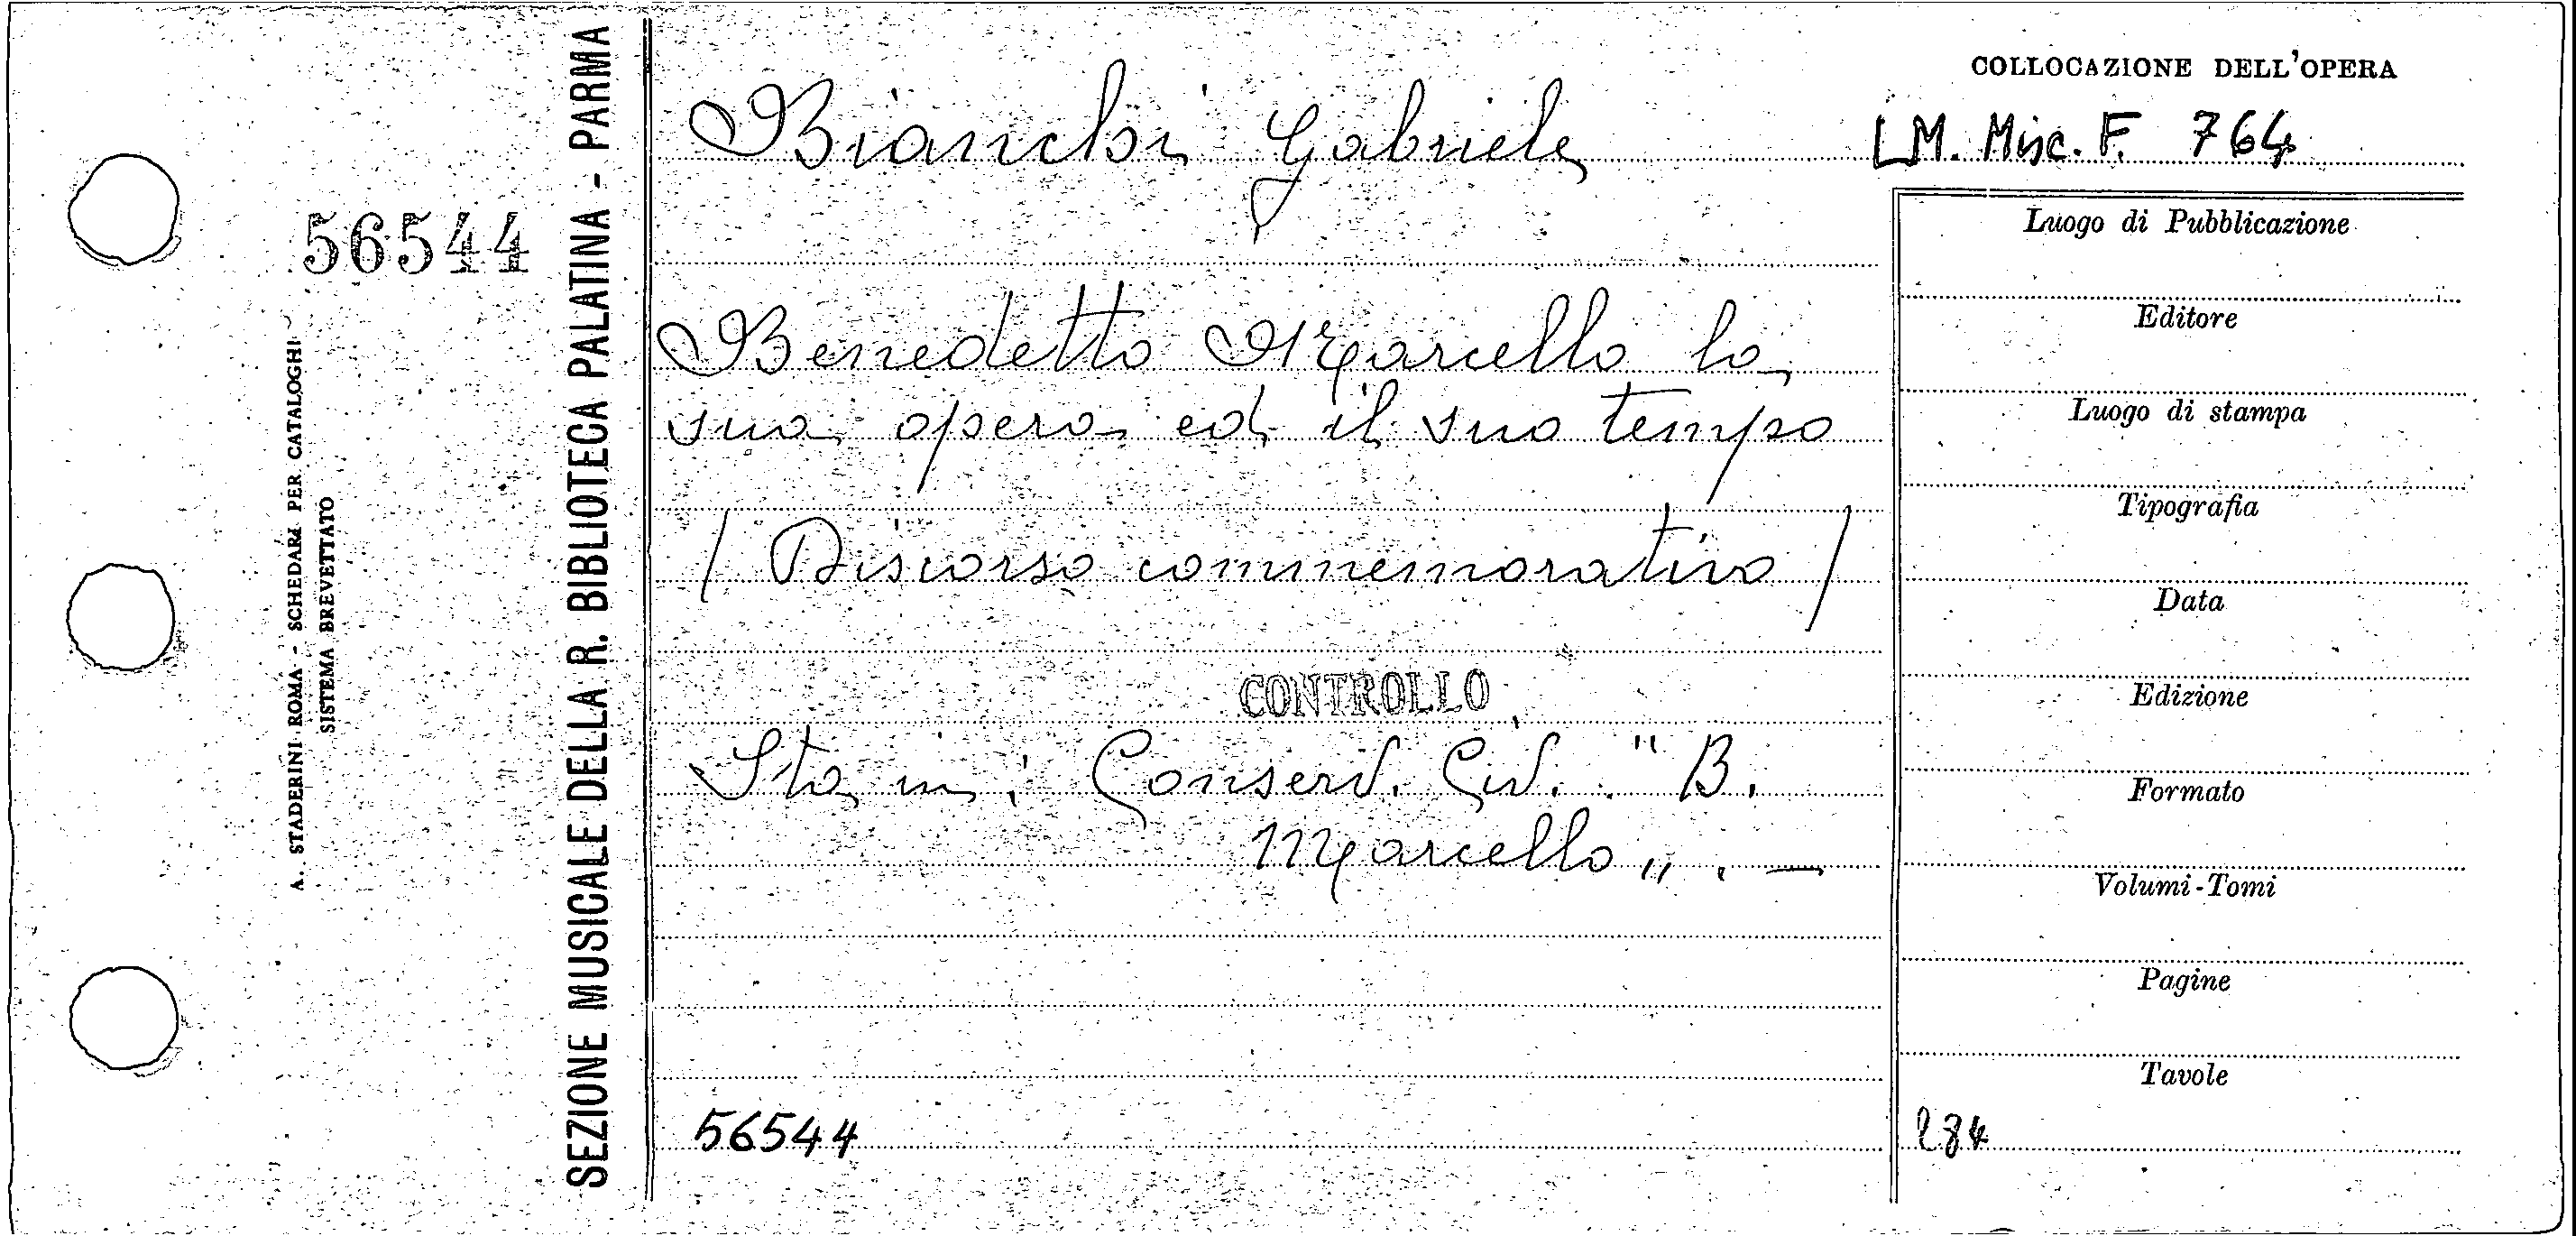 COLLOCAZIONE DELL'OPERA
Bianchi Gabriele
LM. Misc. F. 764
56544
A. STADERINI ROMA - SCHEDARI PER CATALOGHI
SISTEMA BREVETTATO
SEZIONE MUSICALE DELLA R. BIBLIOTECA PALATINA - PARMA
Benedetto Marcello la
sua opera ed il suo tempo
/ Discorso commemorativo /
CONTROLLO
Sta in: Conserv. Civ. "B.
Marcello„. —
56544
Luogo di Pubblicazione
Editore
Luogo di stampa
Tipografia
Data
Edizione
Formato
Volumi-Tomi
Pagine
Tavole
284